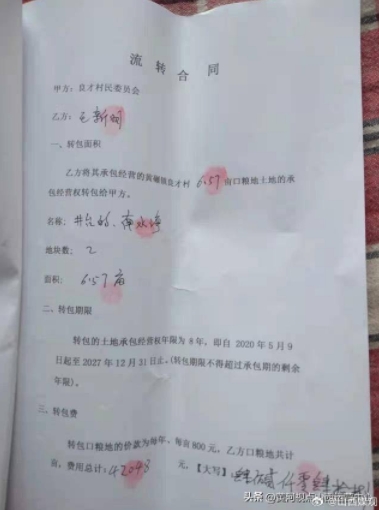 流 转 合 同
甲方：良才村民委员会
乙方：
一、转包面积
乙方将其承包经营的黄堠镇良才村 6.57 亩口粮地土地的承
包经营权转包给甲方。
名称：井台的、
地块数：2
面积：6.57亩
二、转包期限
转包的土地承包经营权年限为 8 年，即自 2020 年 5 月 9
日起至 2027 年 12 月 31 日止。(转包期限不得超过承包期的剩余
年限)。
三、转包费
转包口粮地的价款为每年、每亩 800 元，乙方口粮地共计
亩，费用总计：42048 元，【大写】
头条
@山西微观